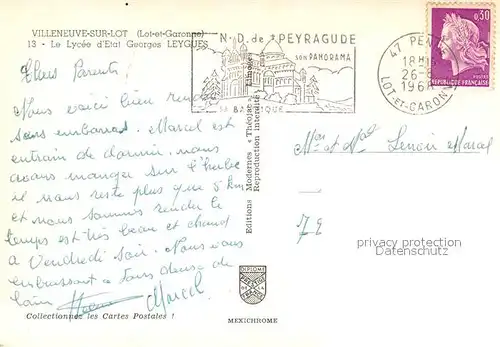 VILLENEUVE-SUR-LOT (Lot-et-Garonne)
13 - Le Lycée d'Etat Georges LEYGUES
N.D. de PEYRAGUDE
son PANORAMA
sa BASILIQUE
47 PENNE
18H
26-6
196
LOT-ET-GARONNE
0,30
REPUBLIQUE FRANÇAISE
POSTES
Chers Parents
Nous voici bien rendu
sans embarras. Marcel est
entrain de dormir. nous
avons manger sur l'herbe
il nous reste plus que 5 km
et nous sommes rendu le
temps est très beau et chaud
a Vendredi soir. Nous vous
embrassont a tous deux de
loin
Marcel
Mr et Mme Lenoir Marcel
Editions Modernes « Théojac » Limoges
Reproduction interdite
DIPLOME
PRESTIGE
Collectionnez les Cartes Postales !
MEXICHROME
privacy protection
Datenschutz